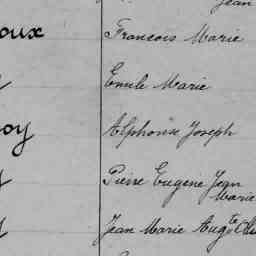 Jean
oux François Marie
Emile Marie
oy Alphonse Joseph
y Pierre Eugene Jean
Marie
y Jean Marie Augte